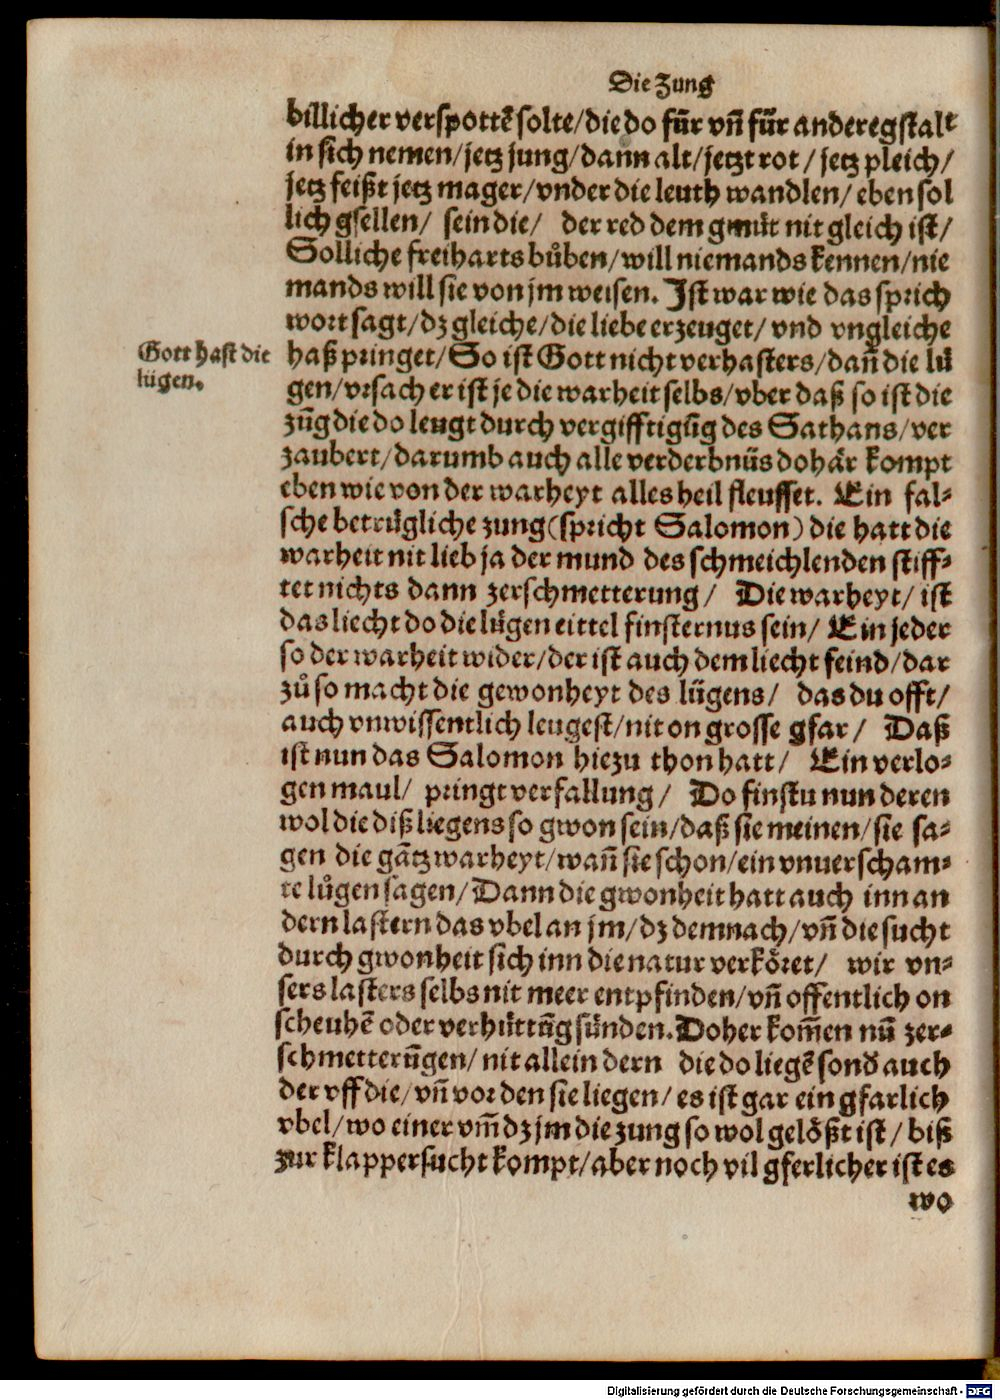 Die Zung
billicher verspottẽ solte/die do für vñ für anderegstalt
in sich nemen/jetz jung/dann alt/jetzt rot / jetz pleich/
jetz feißt jetz mager/vnder die leuth wandlen/ eben sol
lich gsellen/ sein die/ der red dem gmüt nit gleich ist/
Solliche freiharts bůben/will niemands kennen/nie
mands will sie von jm weisen. Ist war wie das sprich
wort sagt/dz gleiche/die liebe erzeuget/ vnd vngleiche
Gott hast die
lügen.
haß pringet/So ist Gott nicht verhasters/dañ die lü
gen/vrsach er ist je die warheit selbs/vber daß so ist die
zũg die do leugt durch vergifftigũg des Sathans/ver
zaubert/darumb auch alle verderbnüs dohär kompt
eben wie von der warheyt alles heil fleusset. Ein fal⸗
sche betrügliche zung(spricht Salomon) die hatt die
warheit nit lieb ja der mund des schmeichlenden stiff⸗
tet nichts dann zerschmetterung/ Die warheyt/ ist
das liecht do die lügen eittel finsternus sein/ Ein jeder
so der warheit wider/der ist auch dem liecht feind/dar
zů so macht die gewonheyt des lügens/ das du offt/
auch vnwissentlich leugest/nit on grosse gfar/ Daß
ist nun das Salomon hiezu thon hatt/ Ein verlo⸗
gen maul/ pringt verfallung/ Do finstu nun deren
wol die diß liegens so gwon sein/daß sie meinen/sie sa⸗
gen die gãtz warheyt/wañ sie schon/ein vnuerscham⸗
te lügen sagen/Dann die gwonheit hatt auch inn an
dern lastern das vbel an jm/dz demnach/vñ die sucht
durch gwonheit sich inn die natur verköret/ wir vn⸗
sers lasters selbs nit meer entpfinden/vñ offentlich on
scheuhẽ oder verhüttũg sünden. Doher kom̃en nũ zer⸗
schmetterũgen/nit allein dern die do liegẽ sonđ auch
der vff die/vñ vor den sie liegen/es ist gar ein gfarlich
vbel/wo einer vm̃ dz jm die zung so wol gelößt ist/ biß
zur klappersucht kompt/aber noch vil gferlicher ist es
wo
Digitalisierung gefördert durch die Deutsche Forschungsgemeinschaft - DFG